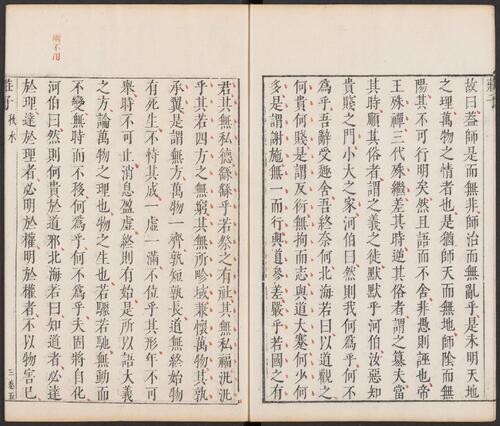 故曰蓋師是而無非師治而無亂乎是未明天地
之理萬物之情者也是猶師天而無地師陰而無
陽其不可行明矣然且語而不舍非愚則誣也帝
王殊禪三代殊繼差其時逆其俗者謂之篡夫當
其時順其俗者謂之義之徒默默乎河伯汝惡知
貴賤之門小大之家河伯曰然則我何為乎何不
為乎吾辭受趣舍吾終奈何北海若曰以道觀之
何貴何賤是謂反衍無拘而志與道大蹇何少何
多是謂謝施無一而行與道參差嚴乎若國之有
君其無私德繇繇乎若祭之有社其無私福泛泛
乎其若四方之無窮其無所畛域兼懷萬物其孰
承翼是謂無方萬物一齊孰短孰長道無終始物
有死生不恃其成一虛一滿不位乎其形年不可
舉時不可止消息盈虛終則有始是所以語大義
之方論萬物之理也物之生也若驟若馳無動而
不變無時而不移何為乎何不為乎夫固將自化
河伯曰然則何貴於道邪北海若曰知道者必達
於理達於理者必明於權明於權者不以物害己
莊子 秋水 三卷五